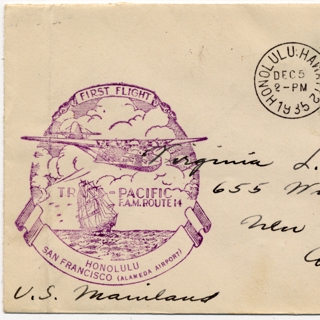 FIRST FLIGHT
TRANS-PACIFIC
F.A.M. ROUTE 14
HONOLULU
SAN FRANCISCO (ALAMEDA AIRPORT)
HONOLULU, HAWAII 2
DEC 5
2-PM
1935
Virginia L.
655
New
U.S. Mainland